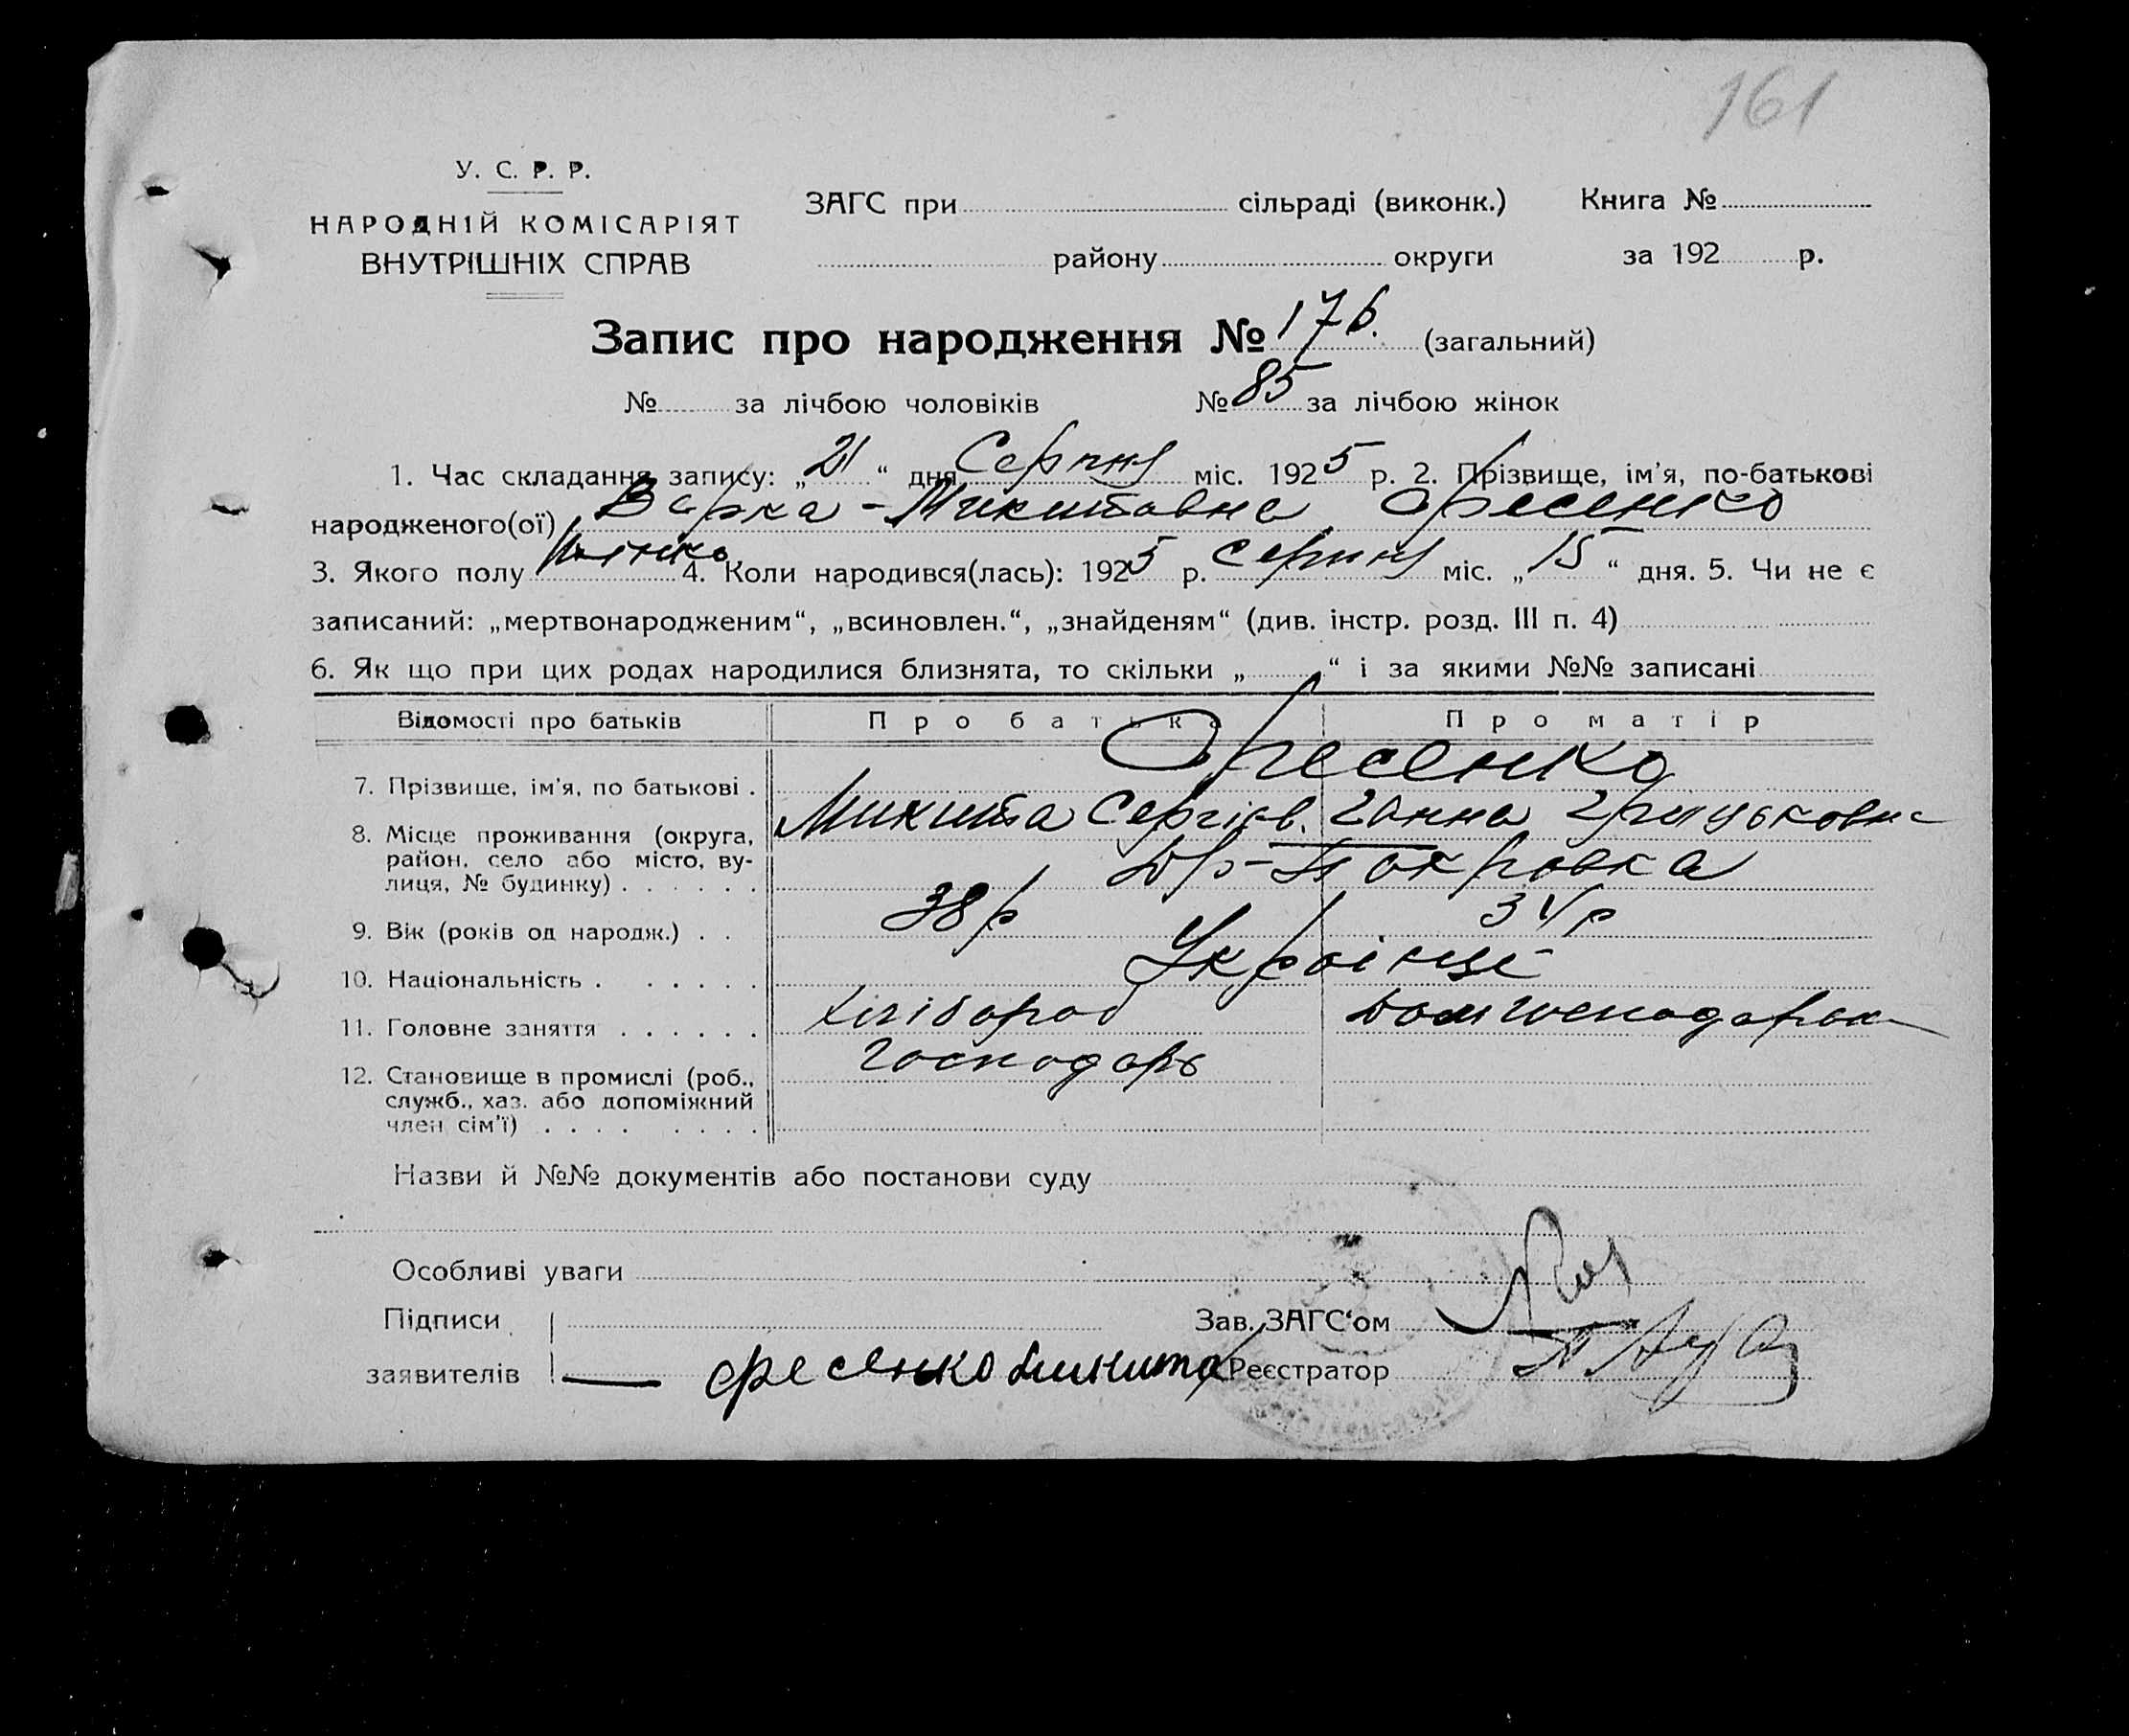 161
У. С. Р. Р.
НАРОДНІЙ КОМІСАРІЯТ
ВНУТРІШНІХ СПРАВ
ЗАГС при сільраді (виконк.) Книга №
району округи за 192 р.
Запис про народження № 176. (загальний)
№ за лічбою чоловіків № 85 за лічбою жінок
1. Час складання запису: „21“ дня Серпня міс. 1925 р. 2. Прізвище, ім'я, по-батькові
народженого(ої) Варка - Микитовна Фесенко
3. Якого полу жінка 4. Коли народився(лась): 1925 р. Серпня міс. „15“ дня. 5. Чи не є
записаний: „мертвонародженим“, „всиновлен.“, „знайденям“ (див. інстр. розд. III п. 4)
6. Як що при цих родах народилися близнята, то скільки „ “ і за якими №№ записані
Відомості про батьків Про батька Про матір
7. Прізвище, ім'я, по батькові . Фесенко
Микита Сергієв. Ганна Грицьковна
8. Місце проживання (округа,
район, село або місто, ву-
лиця, № будинку) . . . . . . Покровка
9. Вік (років од народж.) . . 38 р 3 р
10. Національність . . . . . . Українці
11. Головне заняття . . . . . . Хлібороб Домгосподарка
12. Становище в промислі (роб.,
служб., хаз. або допоміжний
член сім'ї) . . . . . . . . Господарь
Назви й №№ документів або постанови суду
Особливі уваги
Підписи Зав. ЗАГС‘ом
заявителів Фесенко Микита Реєстратор